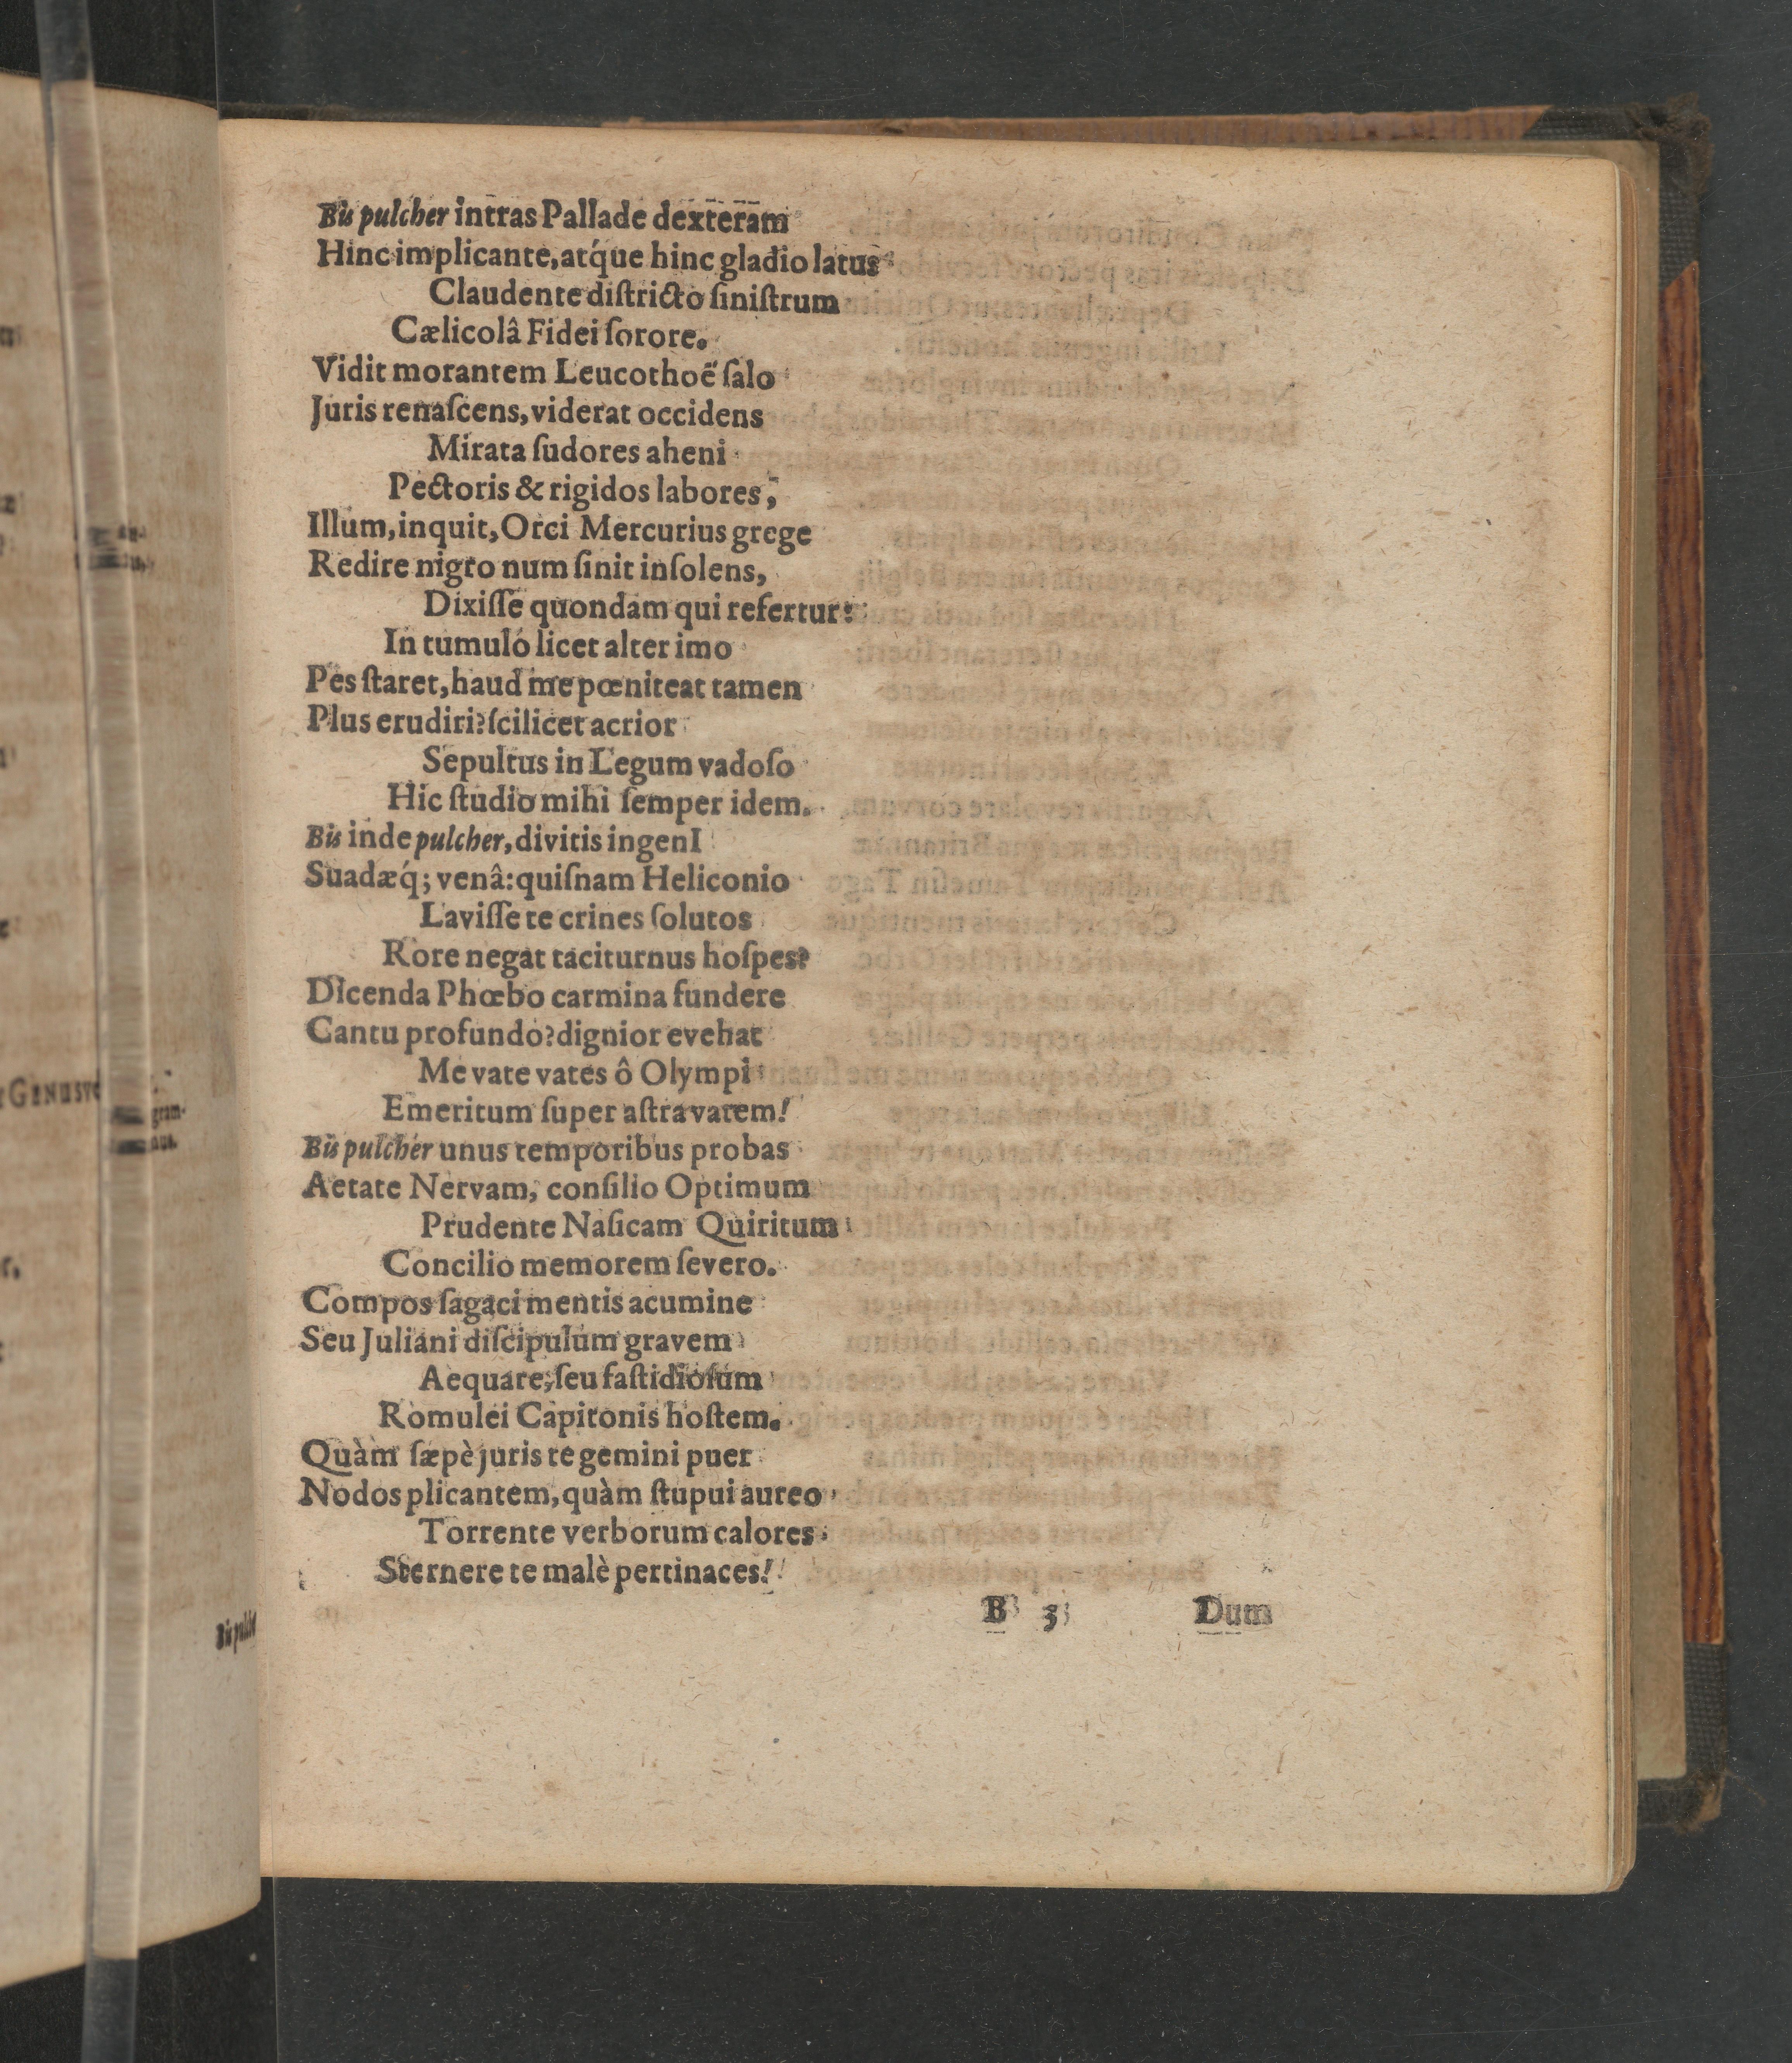 Bis pulcher intras Pallade dexteram
Hinc implicante, atq́ue hinc gladio latus
Claudente diſtricto ſiniſtrum
Cælicolâ Fidei ſorore.
Vidit morantem Leucothoë ſalo
Juris renaſcens, viderat occidens
Mirata ſudores aheni
Pectoris & rigidos labores,
Illum, inquit, Orci Mercurius grege
Redire nigro num ſinit inſolens,
Dixiſſe quondam qui refertur:
In tumulo licet alter imo
Pes ſtaret, haud me pœniteat tamen
Plus erudiri? ſcilicet acrior
Sepultus in Legum vadoſo
Hic ſtudio mihi ſemper idem.
Bis inde pulcher, divitis ingenI
Suadæq́; venâ: quiſnam Heliconio
Laviſſe te crines ſolutos
Rore negat taciturnus hoſpes?
Dicenda Phœbo carmina fundere
Cantu profundo? dignior evehat
Me vate vates ô Olympi
Emeritum ſuper aſtra vatem!
Bis pulcher unus temporibus probas
Aetate Nervam, conſilio Optimum
Prudente Naſicam Quiritum
Concilio memorem ſevero.
Compos ſagaci mentis acumine
Seu Juliani diſcipulum gravem
Aequare, ſeu faſtidioſum
Romulei Capitonis hoſtem.
Quàm ſæpè juris te gemini puer
Nodos plicantem, quàm ſtupui aureo
Torrente verborum calores
Sternere te malè pertinaces!
B 3 Dum